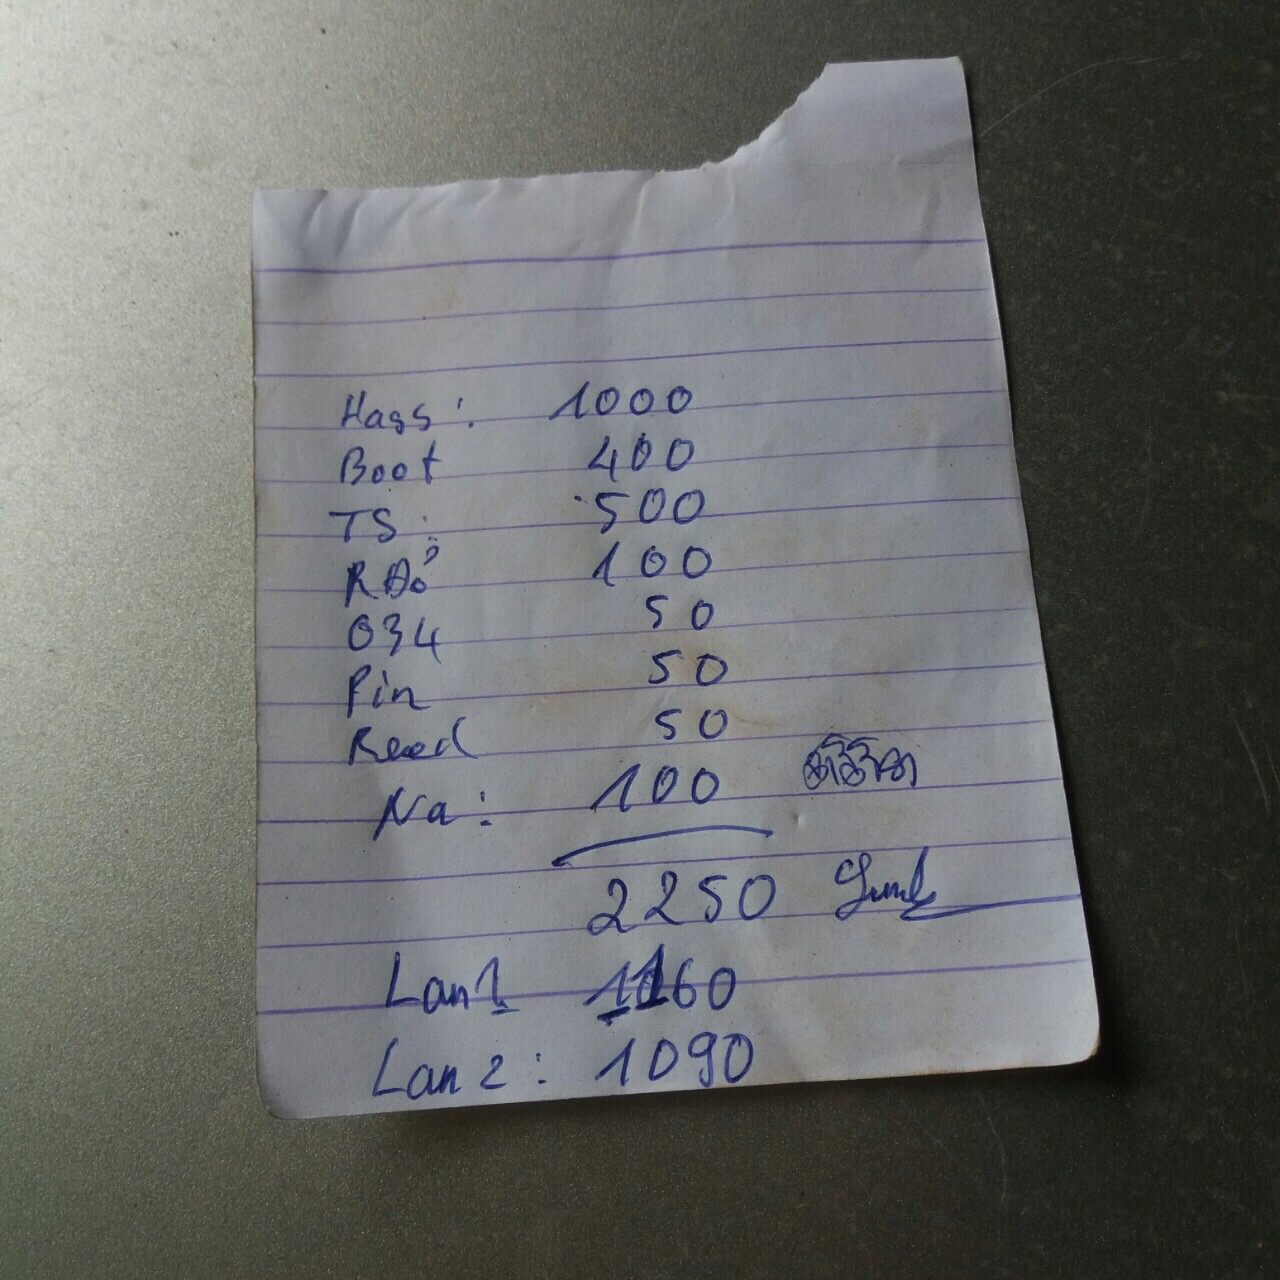 Hass: 1000
Boot 400
TS: 500
R Đỏ 100
034 50
Pin 50
Reed 50
Na: 100
2250
Lan 1 1160
Lan 2: 1090